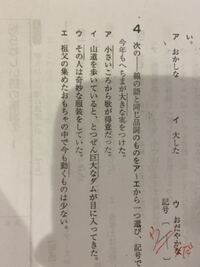 い。
ア おかしな イ 大した ウ おだやかな
記号（ ）
4 次の――線の語と同じ品詞のものをア～エから一つ選び、記号で
今年もへちまが大きな実をつけた。
ア 小さいころから歌が得意だった。
イ 山道を歩いていると、とつぜん巨大なダムが目に入ってきた。
ウ その人は奇妙な服装をしていた。
エ 祖父の集めたおもちゃの中で今も動くものは少ない。